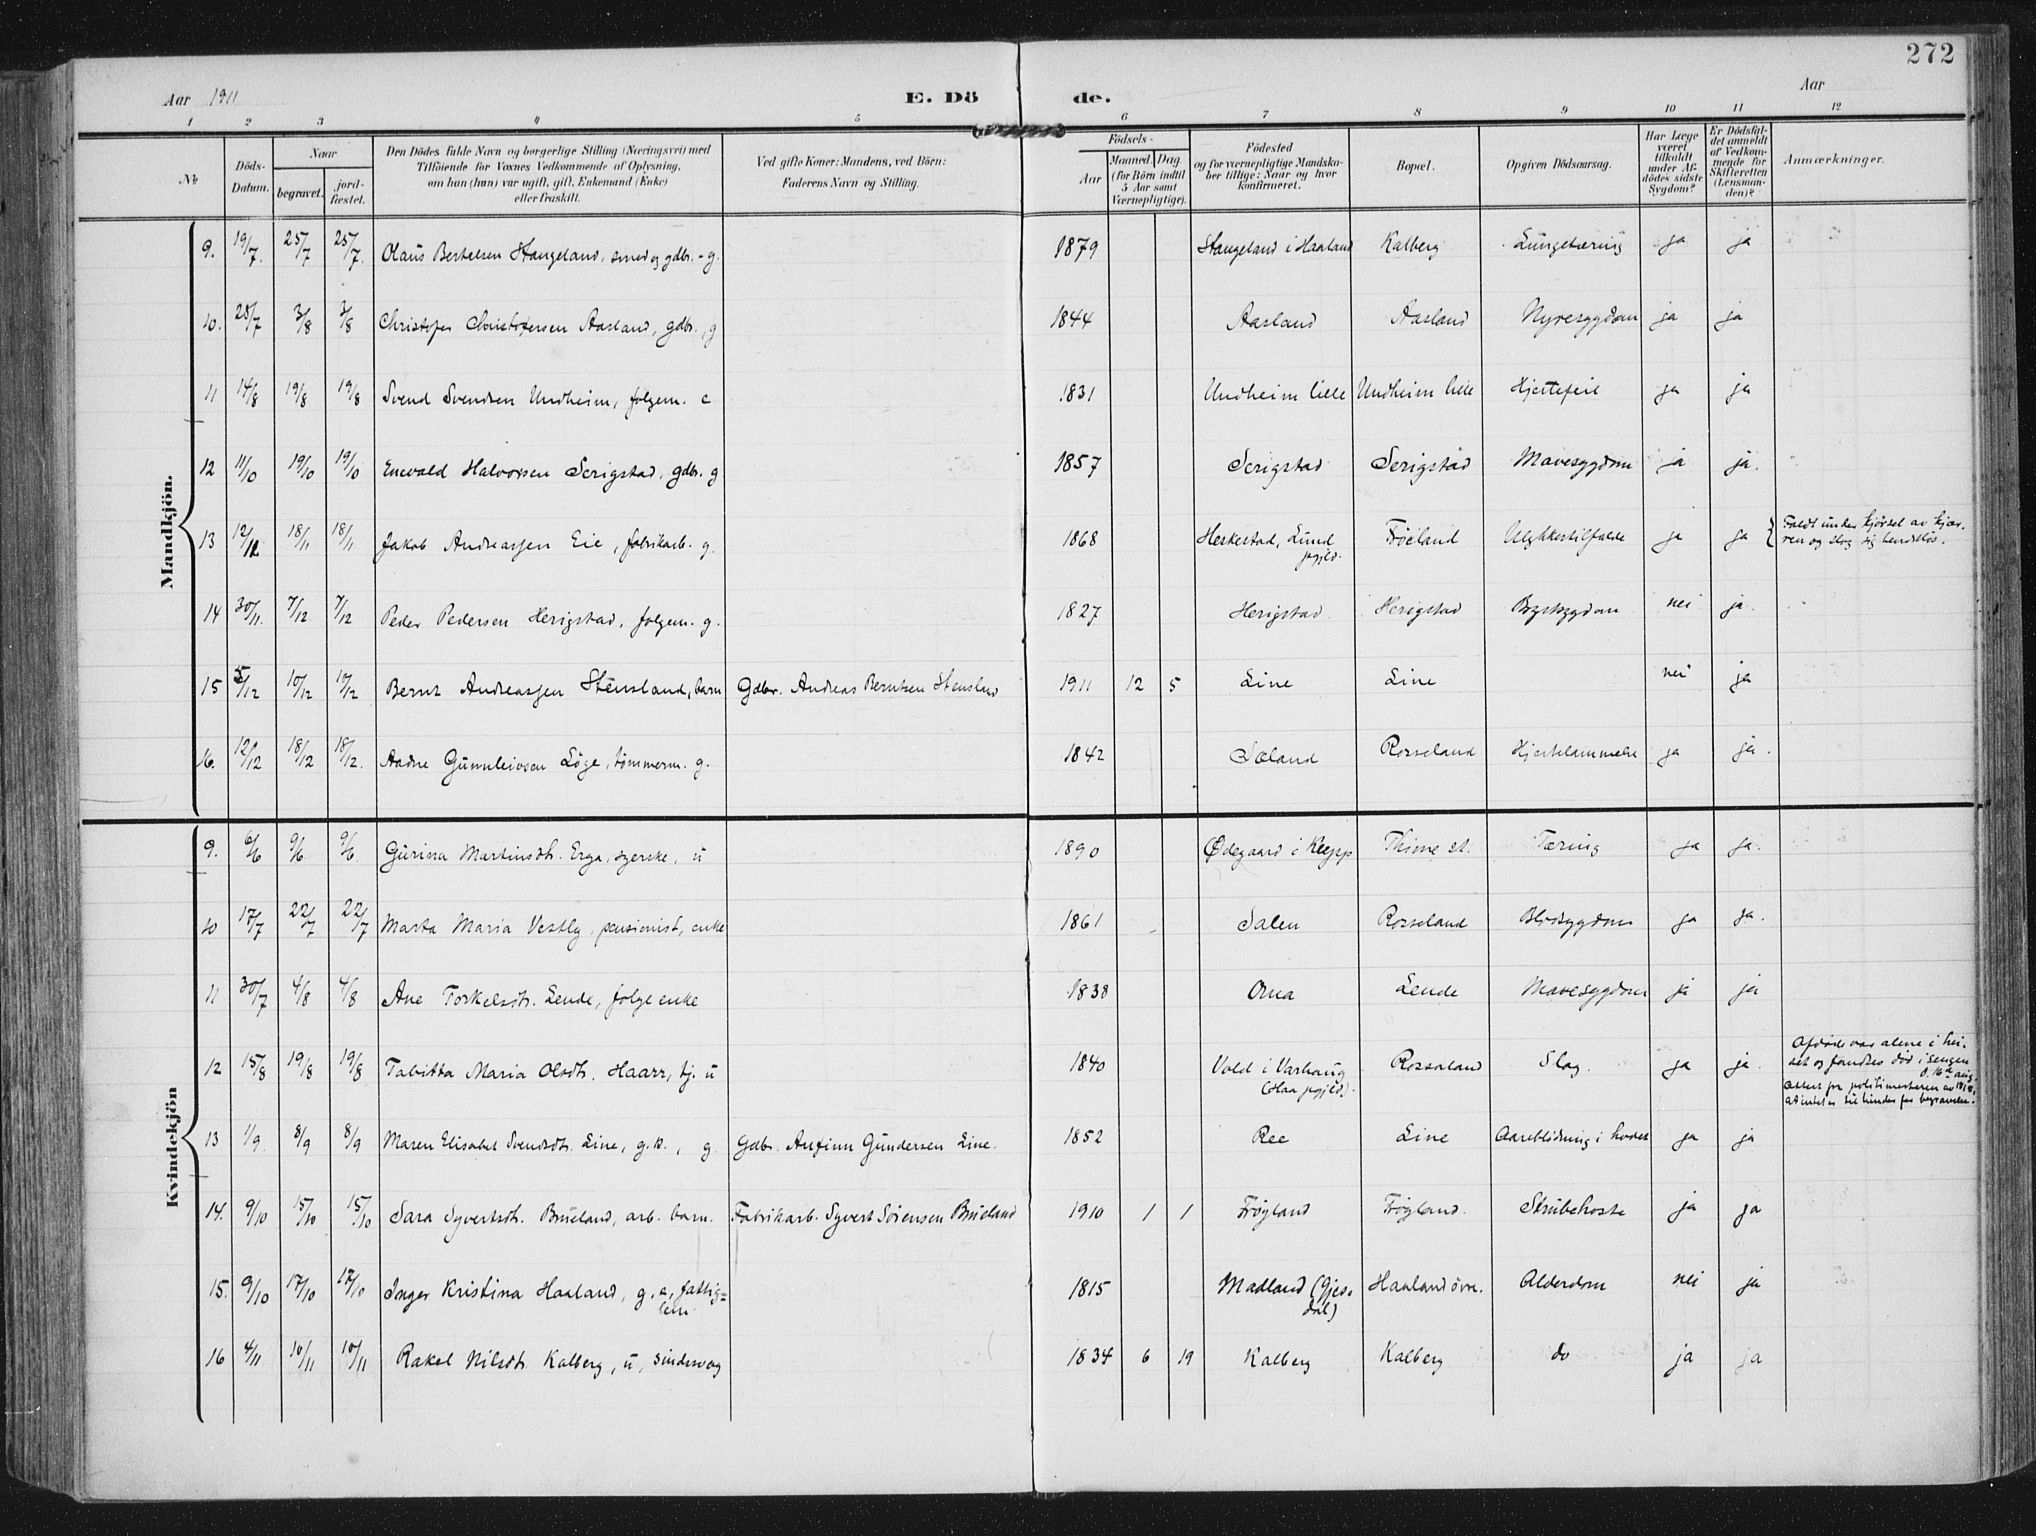 272
Aar 1911
E. Dö
de.
Aar
1 2 3 4 5 6 7 8 9 10 11 12
No
Döds-Datum.
Naar
begravet.
jord-fæstet.
Den Dödes fulde Navn og borgerlige Stilling (Næringsvei) med
Tilföiende for Voxnes Vedkommende af Oplysning,
om han (hun) var ugift, gift, Enkemand (Enke)
eller fraskilt.
Ved gifte Koner: Mandens, ved Börn:
Faderens Navn og Stilling.
Födsels-
Aar
Maaned. Dag.
(for Börn indtil
5 Aar samt
Værnepligtige).
Födested
og for værnepligtige Mandska-
ber tillige: Naar og hvor
konfirmeret.
Bopæl.
Opgiven Dödsaarsag.
Har Læge
været
tilkaldt
under Af-
dödes sidste
Sygdom?
Er Dödsfal-
det anmeldt
af Vedkom-
mende for
Skifteretten
(Lensman-
den)?
Anmærkninger.
Mandkjön.
9. 19/7. 25/7 25/7. Olaus Bertelsen Stangeland, smed og gdbr. - g. 1879 Stangeland i Haaland Kalberg Lungetæring ja ja
10. 28/7 3/8 3/8 Christofer Christofersen Aasland, gdbr., g 1844 Aasland Aasland Nyresygdom ja ja
11 14/8 19/8 19/8 Svend Svendsen Undheim, folgem. e 1831 Undheim lille Undheim lille Hjertefeil ja ja
12 11/10 19/10 19/10 Enevald Halvorsen Serigstad, gdbr. g 1857 Serigstad Serigstad Mavesygdom ja ja.
13 12/11 18/11 18/11 Jakob Andreassen Eie, fabrikarb. g. 1868 Heskestad, Lund pgjeld. Frøiland Ulykkestilfælde ja ja Faldt under kjørsel av kjær-
ren og slog sig hendeløs.
14 30/11. 7/12 7/12 Peder Pedersen Herigstad, folgem. g. 1827 Herigstad Herigstad Brystsygdom nei ja.
15 5/12 10/12 10/12 Bernt Andreassen Stensland, barn Gdbr. Andreas Berntsen Stensland 1911 12 5 Line Line nei ja
16. 12/12 18/12 18/12. Aadne Gunnleivsen Löge, tømmerm. g. 1842 Sæland Rosseland Hjertelammelse ja ja.
Kvindekjön
9. 6/6 9/6 9/6 Gurina Martinsdt. Erga, syerske, u 1890 Ødegaard i Klepp Thime st. Tæring ja ja.
10 17/7 22/7 22/7 Marta Maria Vestly, pensionist, enke 1861 Salen Rosseland Blodsygdom ja ja.
11 30/7 4/8 4/8 Ane Torkelsdt. Lende, folge enke 1838 Orna Lende Mavesygdom ja ja
12 15/8 19/8 19/8 Tabitta Maria Olsdt. Haarr, tj. u 1840 Vold i Varhaug
(Haa pgjeld.) Rosseland Slag ja ja. Afdøde var alene i hu-
set og fandtes død i sengen
d. 16de aug.
Attest fra politimesteren av 18/8
at intet er til hinder for begravelse.
13 1/9. 8/9 8/9 Maren Elisabet Svendsdt. Line, g.k., g. Gdbr. Anfinn Gundersen Line. 1852 Ree Line Aareblødning i hodet ja ja
14. 9/10 15/10 15/10 Sara Syvertsdt. Brueland, arb. barn. Fabrikarb. Syvert Sörensen Brueland 1910 1 1 Frøyland Frøyland. Strubehoste ja ja
15. 9/10 17/10 17/10 Inger Kristina Haaland, g. e, fattig=
lem 1815 Madland (Gjes-
dal) Haaland övr. Alderdom nei ja
16 4/11 10/11 10/11 Rakel Nilsdt. Kalberg, u, sindssvag 1834 6 19 Kalberg Kalberg do ja ja